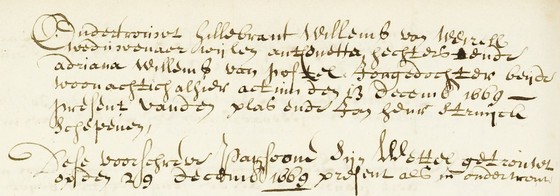 Ondertrouwt Hillebrant Willems van Wereelt
weduwenaer wijlen anthonetta hechters ende
adriana Willems van postel Jongedochter beijde
woonachtich alhier actum den 13 decemb 1669
present vanden plas ende Jan henr Struijck
Schepenen,
Dese voorschreve Parsoone Zijn Wettel getrouwt
op den 29 decemb 1669 present als in ondertrouw